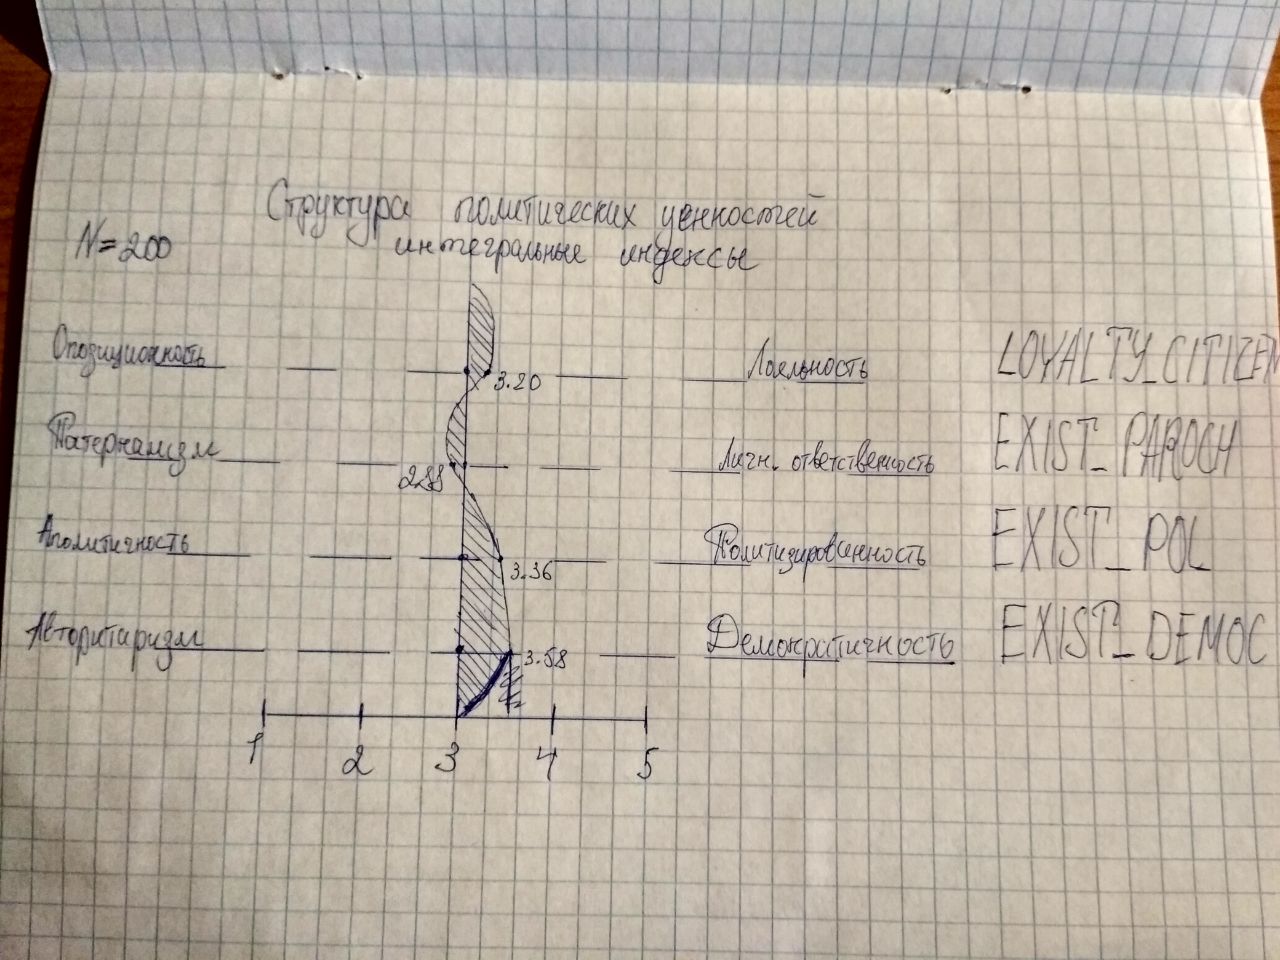 Структура политических ценностей
N=200 интегральные индексы
Опозиционность 3.20 Лояльность LOYALTY_CITIZEN
Патернализм 2.88 Личн. ответственность EXIST_PAROCH
Аполитичность 3.36 Политизированность EXIST_POL
Авторитаризм 3.58 Демократичность EXIST_DEMOC
1 2 3 4 5